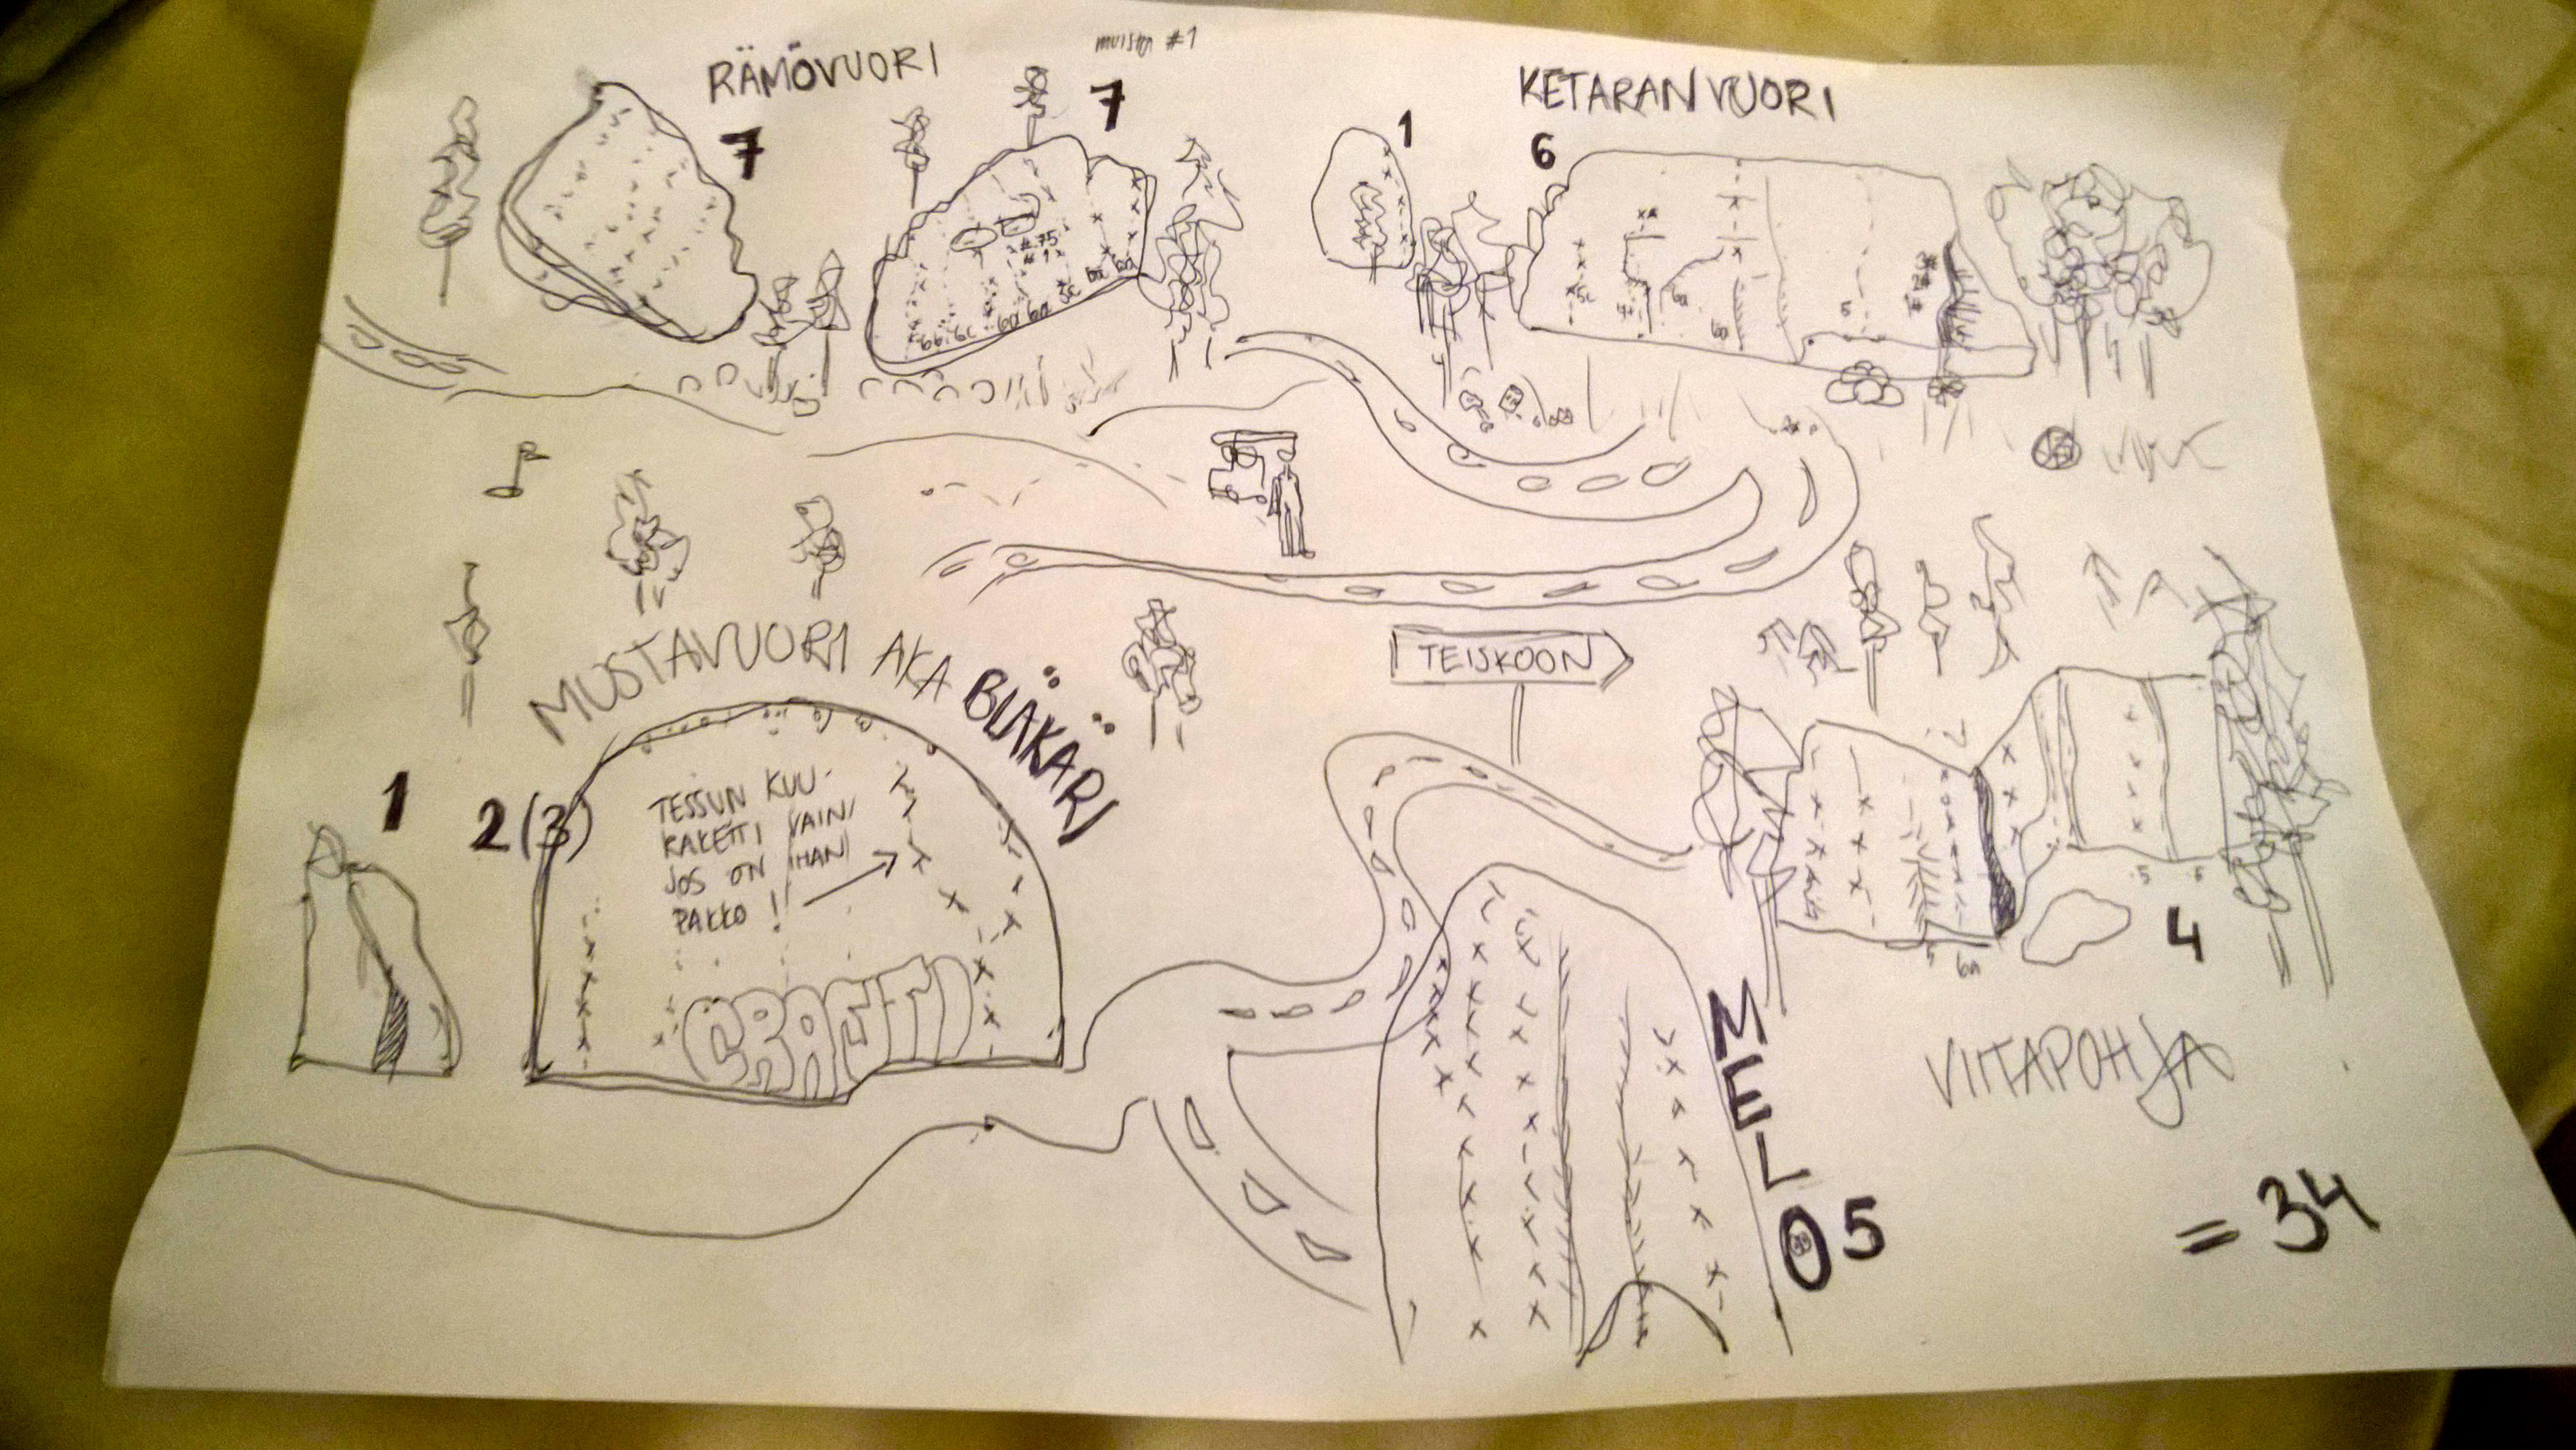 RÄMÖVUORI
muista #1
7
7
#.75
#1
6b 6c 6a 6a 5c 6a 6a
KETARANVUORI
1
6
5c
6a
6a
5
MUSTAVUORI AKA BLÄKÄRI
1
2(3)
TESSUN KUU-
RAKETTI VAIN
JOS ON IHAN
PAKKO!
GRAFFITI
TEISKOON
5
6
5
6a
4
VIITAPOHJA
MELO 5
= 34